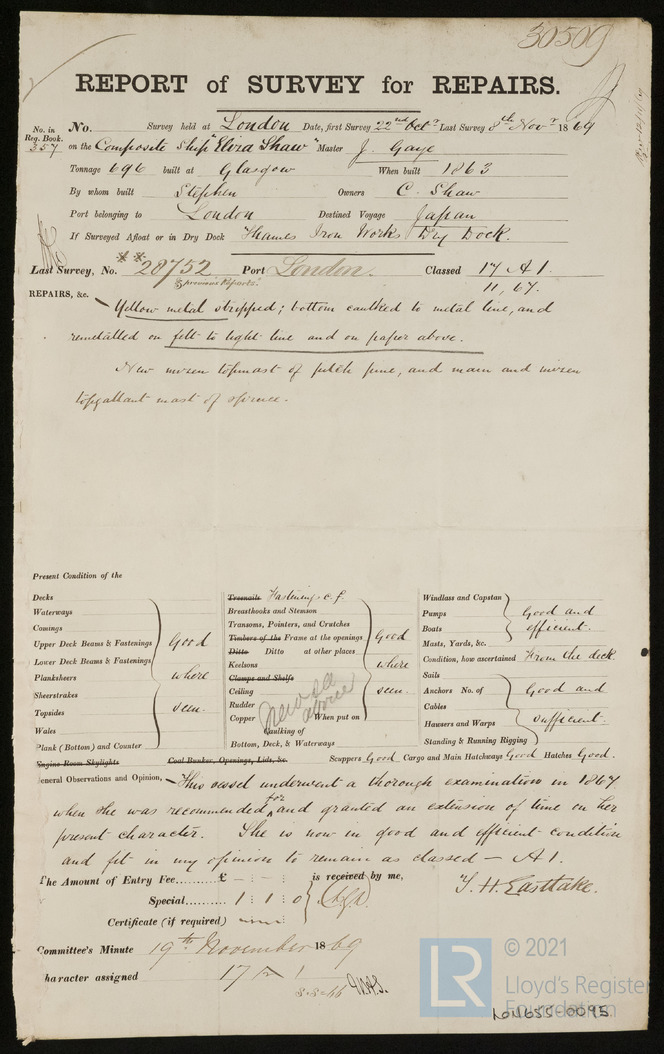 30509
REPORT of SURVEY for REPAIRS.
No. in Reg. Book. 357
No. Survey held at London Date, first Survey 22nd Octr Last Survey 8th Novr 1869
on the Composite Ship "Elvira Shaw" Master J. Gaye
Tonnage 696 built at Glasgow When built 1863
By whom built Stephen Owners C. Shaw
Port belonging to London Destined Voyage Japan
If Surveyed Afloat or in Dry Dock Thames Iron Works Dry Dock.
Last Survey, No. 28752 Port London. Classed 17 A 1.
& previous Reports. 11, 67.
REPAIRS, &c. Yellow metal stripped; bottom caulked to metal line, and
remetalled on felt to light line and on paper above.
New mizen topmast of pitch pine, and main and mizen
topgallant mast of spruce.
Present Condition of the
Decks
Waterways
Comings
Upper Deck Beams & Fastenings
Lower Deck Beams & Fastenings
Planksheers
Sheerstrakes
Topsides
Wales
Plank (Bottom) and Counter
Good
where
seen.
Treenails Fastenings c. f.
Breasthooks and Stemson
Transoms, Pointers, and Crutches
Timbers of the Frame at the openings
Ditto Ditto at other places
Keelsons
Clamps and Shelfs
Ceiling
Rudder
Copper When put on
Caulking of
Bottom, Deck, & Waterways
Good
where
seen.
New as
above
Windlass and Capstan
Pumps
Boats
Good and
efficient.
Masts, Yards, &c.
Condition, how ascertained From the deck
Sails
Anchors No. of
Cables
Hawsers and Warps
Standing & Running Rigging
Good and
sufficient.
Engine Room Skylights Coal Bunker, Openings, Lids, &c. Scuppers Good Cargo and Main Hatchways Good Hatches Good.
General Observations and Opinion, This vessel underwent a thorough examination in 1867
when she was recommended for and granted an extension of time on her
present character. She is now in good and efficient condition
and fit in my opinion to remain as classed — A 1.
The Amount of Entry Fee.......... £ — : — : is received by me,
Special.......... 1 : 1 : 0
Certificate (if required)
T. H. Eastlake.
Committee's Minute 19th November 1869
Character assigned 17 A 1
LR © 2021
Lloyd's Register
Foundation
LON655-0095